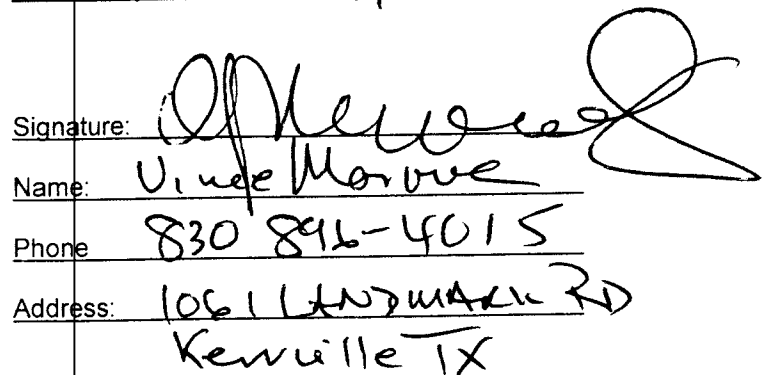 Signature:
Name: Vince
Phone 830 896-4015
Address: 1061 LANDMARK RD
Kerrville TX